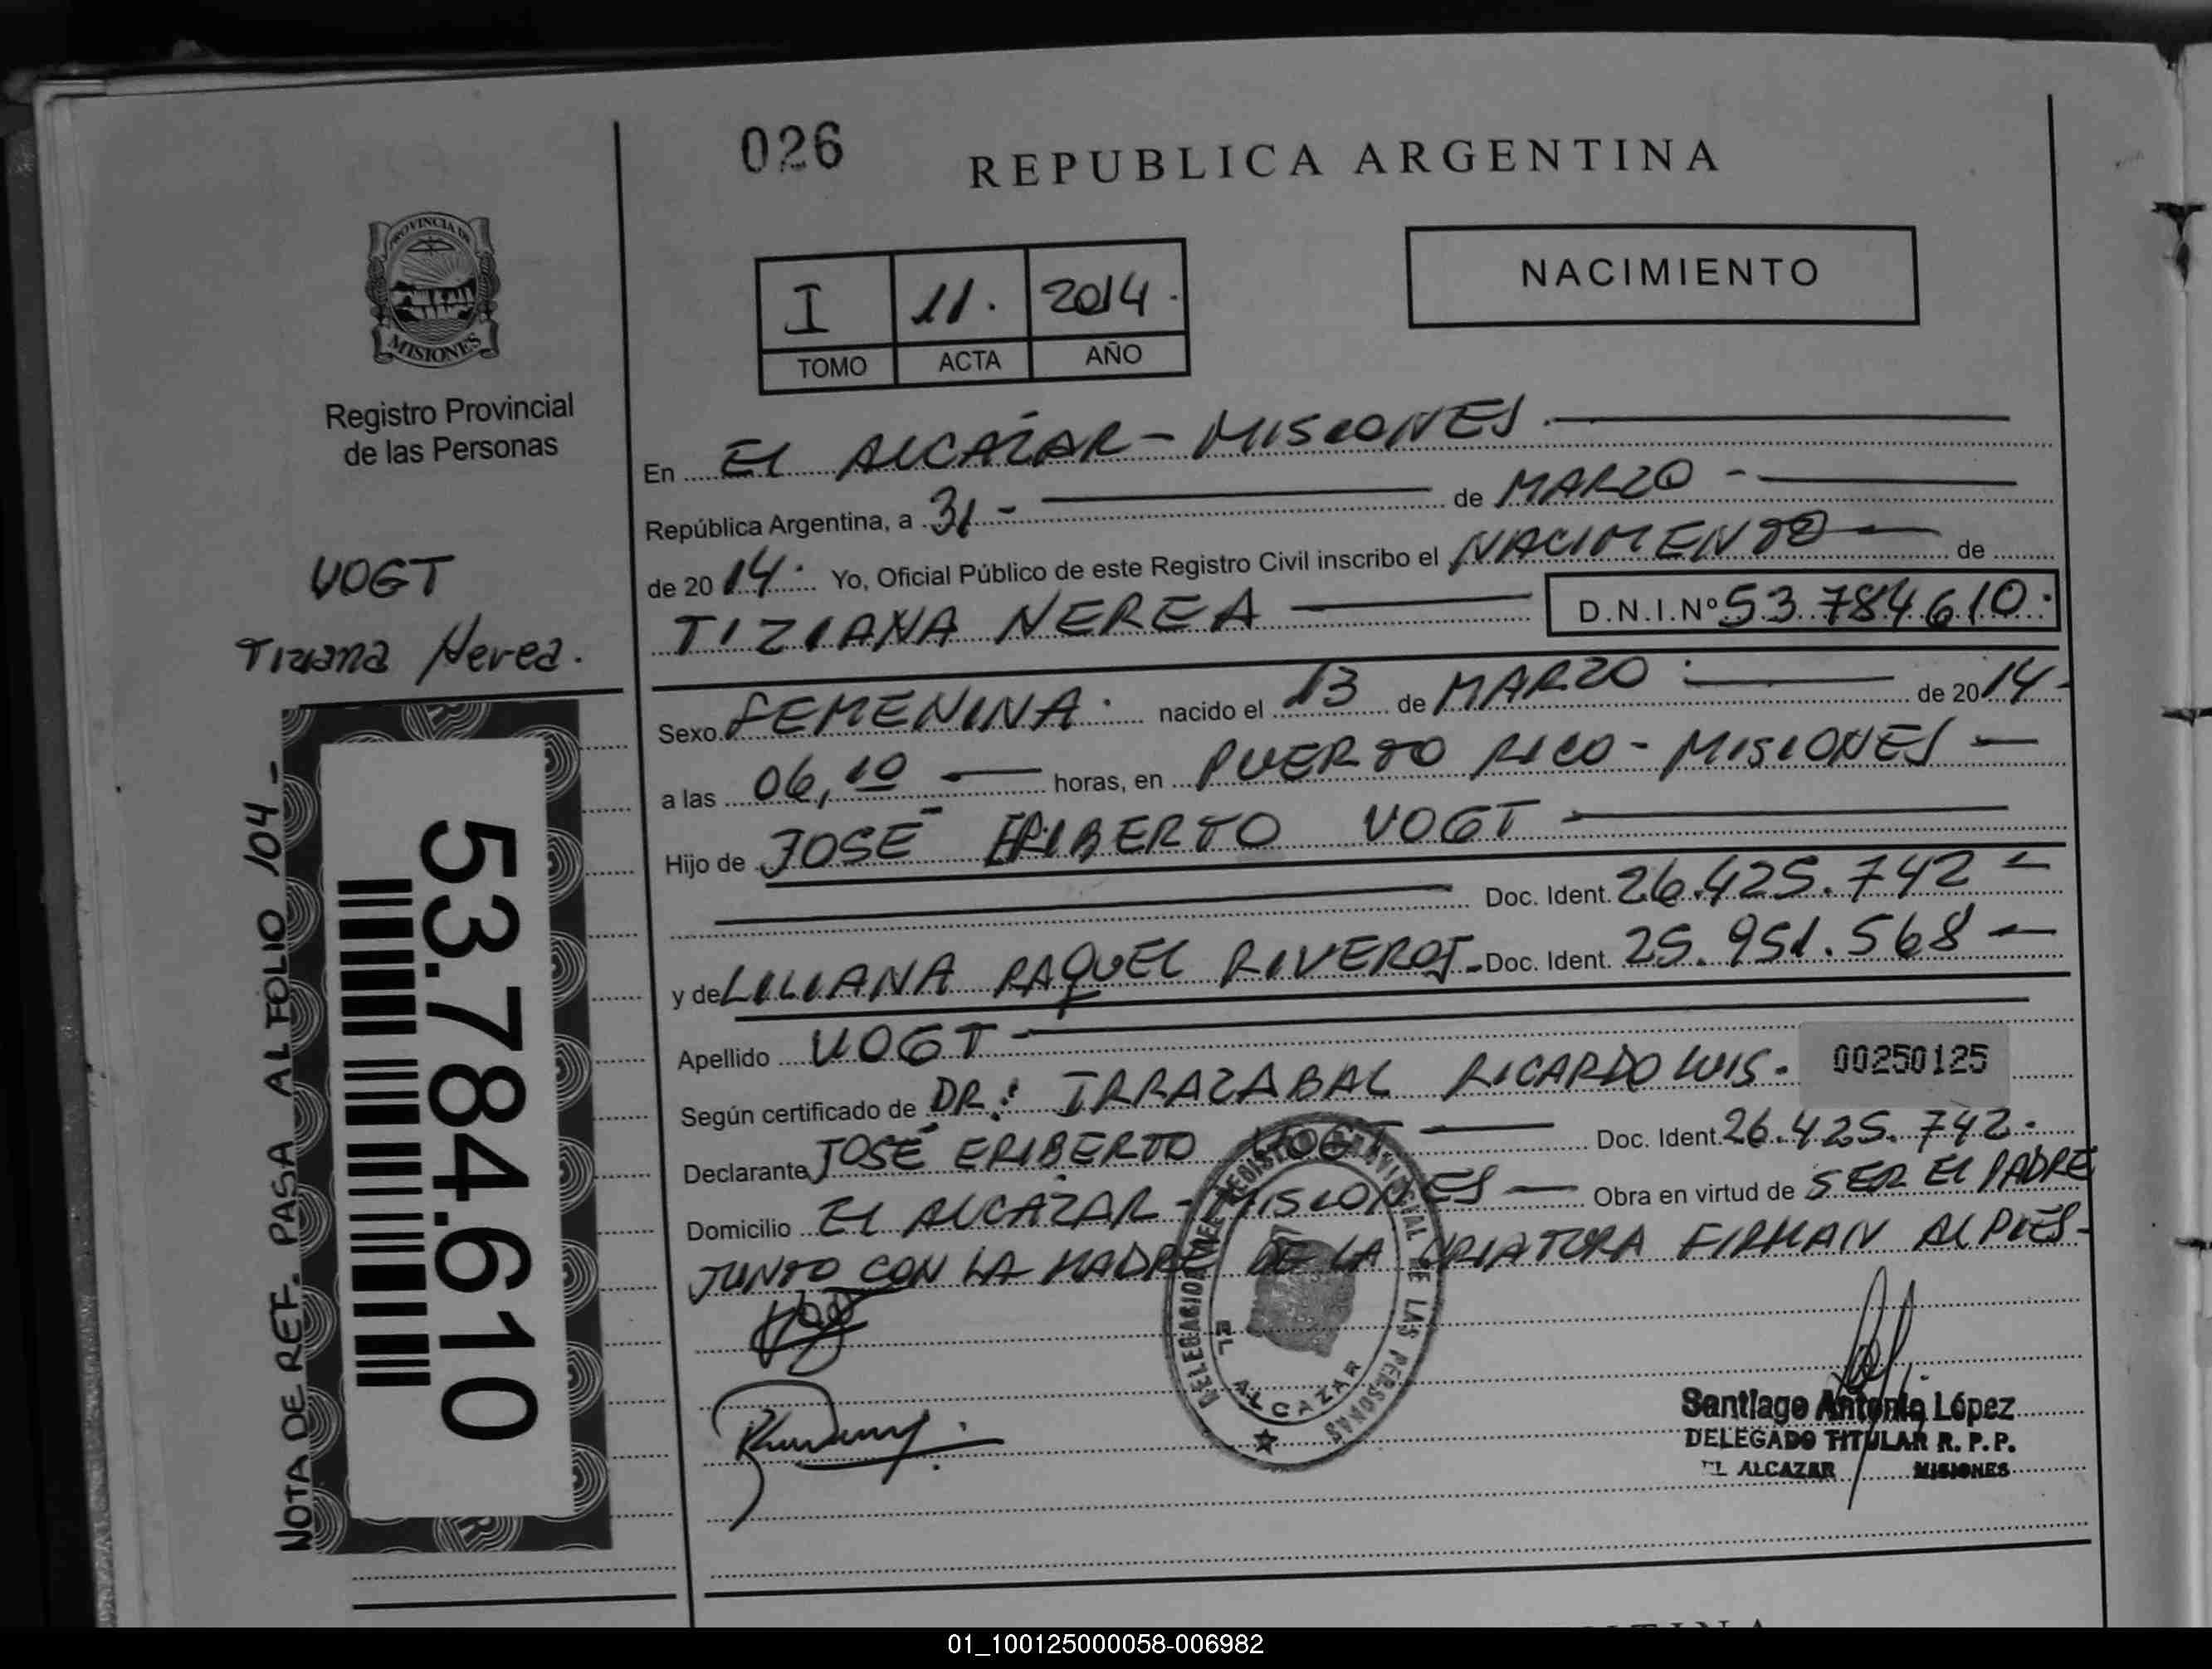 026
REPUBLICA ARGENTINA
PROVINCIA DE
MISIONES
Registro Provincial
de las Personas
I 11. 2014.
TOMO ACTA AÑO
NACIMIENTO
En El ALCAZAR - MISIONES.
República Argentina, a 31 - de MARZO -
de 2014. Yo, Oficial Público de este Registro Civil inscribo el NACIMIENTO de
TIZIANA NEREA D.N.I.Nº 53.784.610.
Sexo FEMENINA. nacido el 13 de MARZO de 2014-
a las 06,10 horas, en PUERTO RICO - MISIONES
Hijo de JOSÉ ERIBERTO VOGT
Doc. Ident. 26.425.742 -
y de LILIANA RAQUEL RIVEROS - Doc. Ident. 25.951.568 -
Apellido VOGT -
Según certificado de DR: IRRAZABAL RICARDO LUIS. 00250125
Declarante JOSÉ ERIBERTO VOGT Doc. Ident. 26.425.742.
Domicilio El ALCAZAR - MISIONES Obra en virtud de SER El PADRE
JUNTO CON LA MADRE DE LA CRIATURA FIRMAN AL PIES-
VOGT
Tiziana Nerea.
NOTA DE REF. PASA AL FOLIO 104-
53.784.610
REGISTRO PROVINCIAL DE LAS PERSONAS
DELEGACION
EL ALCAZAR
Santiago Antonio López
DELEGADO TITULAR R.P.P.
EL ALCAZAR MISIONES
01_100125000058-006982